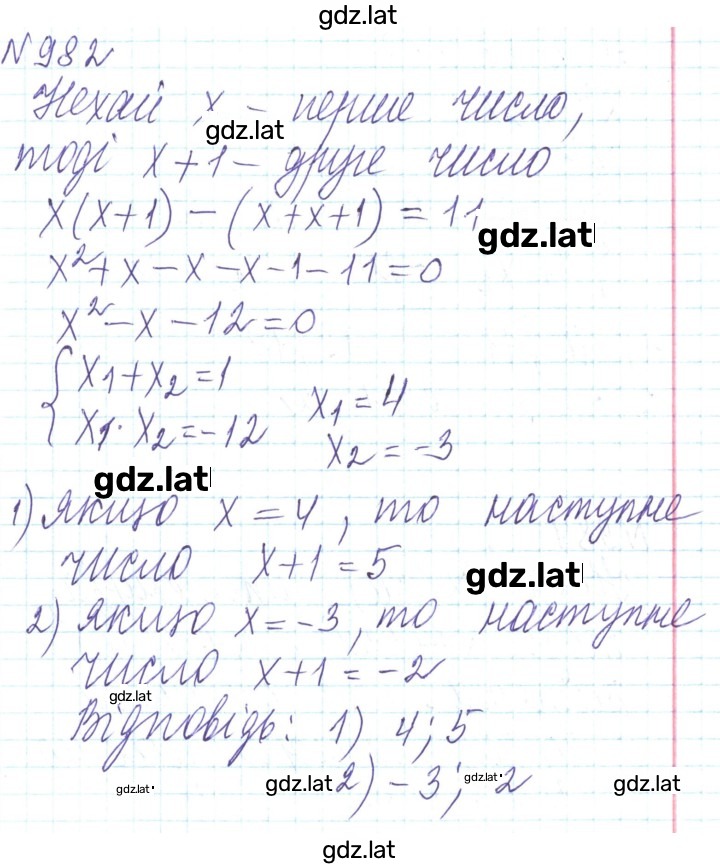 gdz.lat
№982
Нехай x – перше число,
gdz.lat
тоді x+1 – друге число
x(x+1) – (x+x+1) = 11
gdz.lat
x²+x–x–x–1–11=0
x²–x–12=0
{ x₁+x₂=1
x₁·x₂=–12
x₁=4
x₂=–3
gdz.lat
1) якщо x=4, то наступне
число x+1=5
gdz.lat
2) якщо x=–3, то наступне
число x+1=–2
gdz.lat
Відповідь: 1) 4; 5
2) –3; -2
gdz.lat gdz.lat gdz.lat gdz.lat
gdz.lat